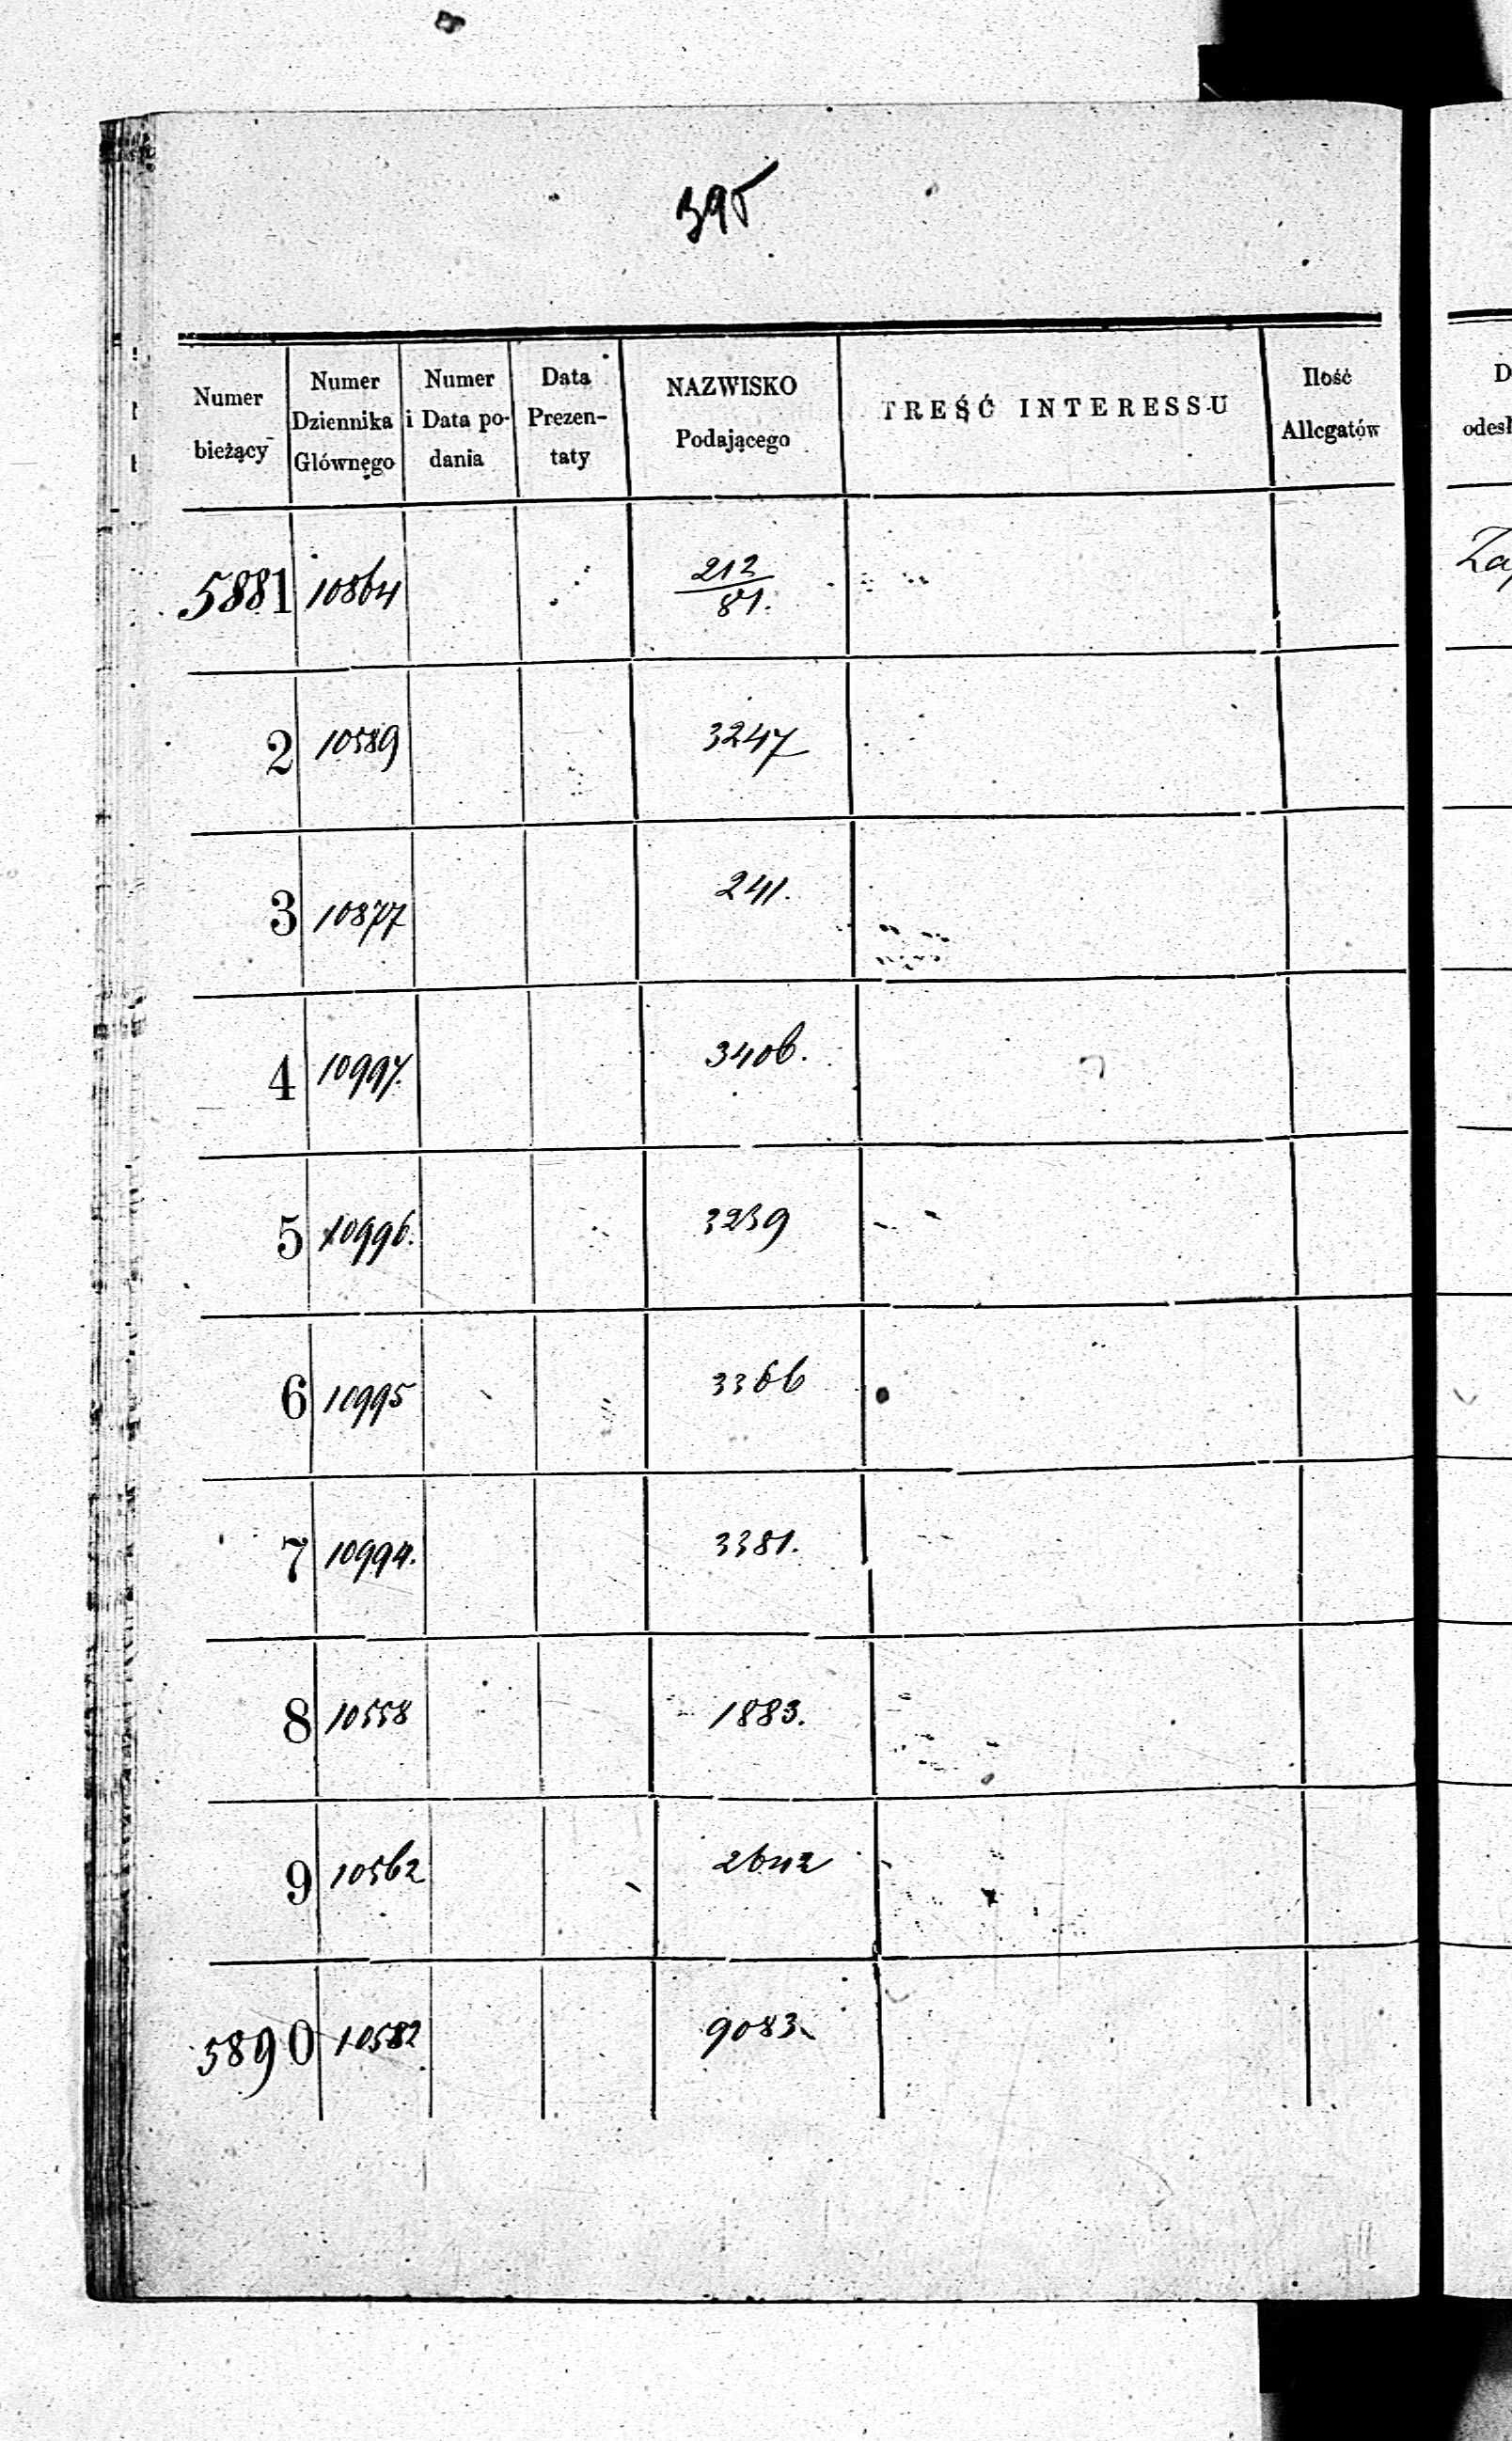 395
Numer bieżący | Numer Dziennika Głównego | Numer i Data podania | Data Prezentaty | NAZWISKO Podającego | TREŚĆ INTERESSU | Ilość Allegatów
5881 | 10864 | | | 212/81.
2 | 10589 | | | 3247
3 | 10877 | | | 241.
4 | 10997. | | | 3406.
5 | 10996. | | | 3239
6 | 10995 | | | 3366
7 | 10994. | | | 3381.
8 | 10558 | | | 1883.
9 | 10562 | | | 2642
5890 | 10582 | | | 9083.